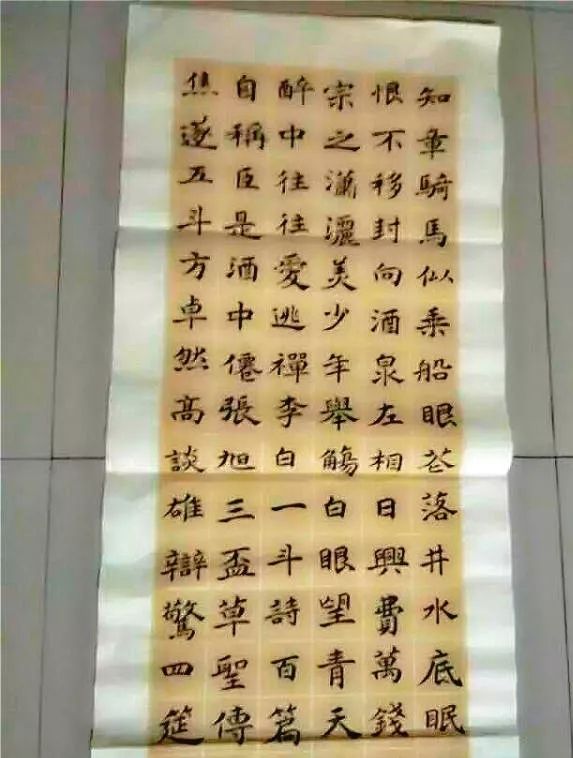 知章騎馬似乘船眼花落井水底眠
恨不移封向酒泉左相日興費萬錢
宗之瀟灑美少年舉觴白眼望青天
醉中往往愛逃禪李白一斗詩百篇
自稱臣是酒中僊張旭三盃草聖傳
焦遂五斗方卓然高談雄辯驚四筵